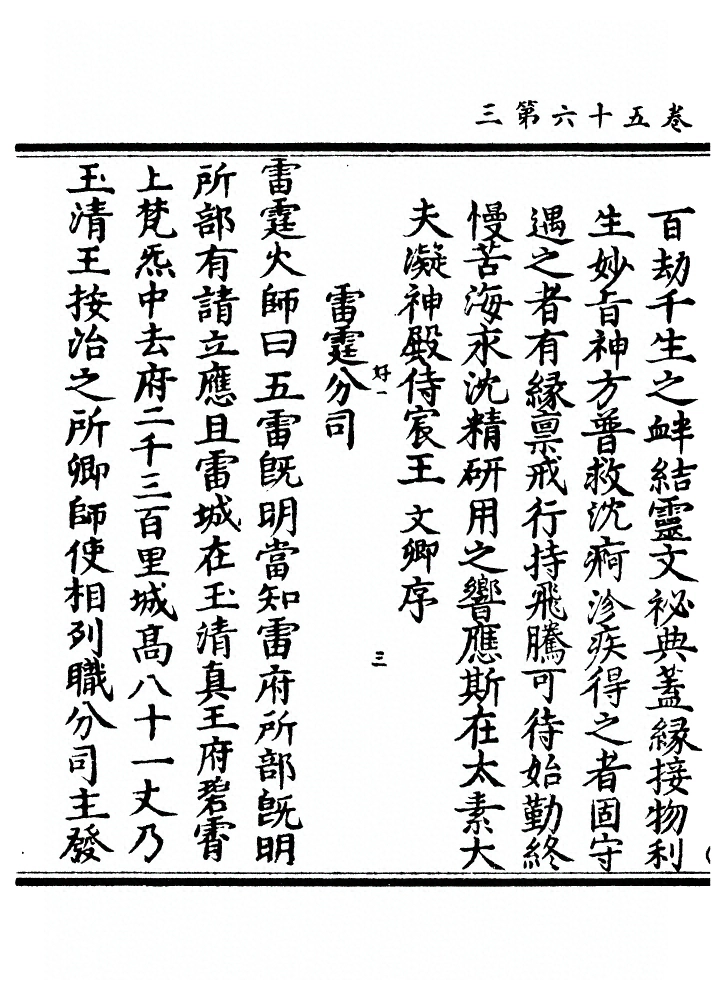 卷五十六第三
百劫千生之衅結靈文祕典蓋緣接物利
生妙旨神方普救沈痾診疾得之者固守
遇之者有緣禀戒行持飛騰可待始勤終
慢苦海永沈精研用之響應斯在太素大
夫凝神殿侍宸王文卿序
好一 三
雷霆分司
雷霆火師曰五雷既明當知雷府所部既明
所部有請立應且雷城在玉清真王府碧霄
上梵炁中去府二千三百里城高八十一丈乃
玉清王按治之所卿師使相列職分司主發